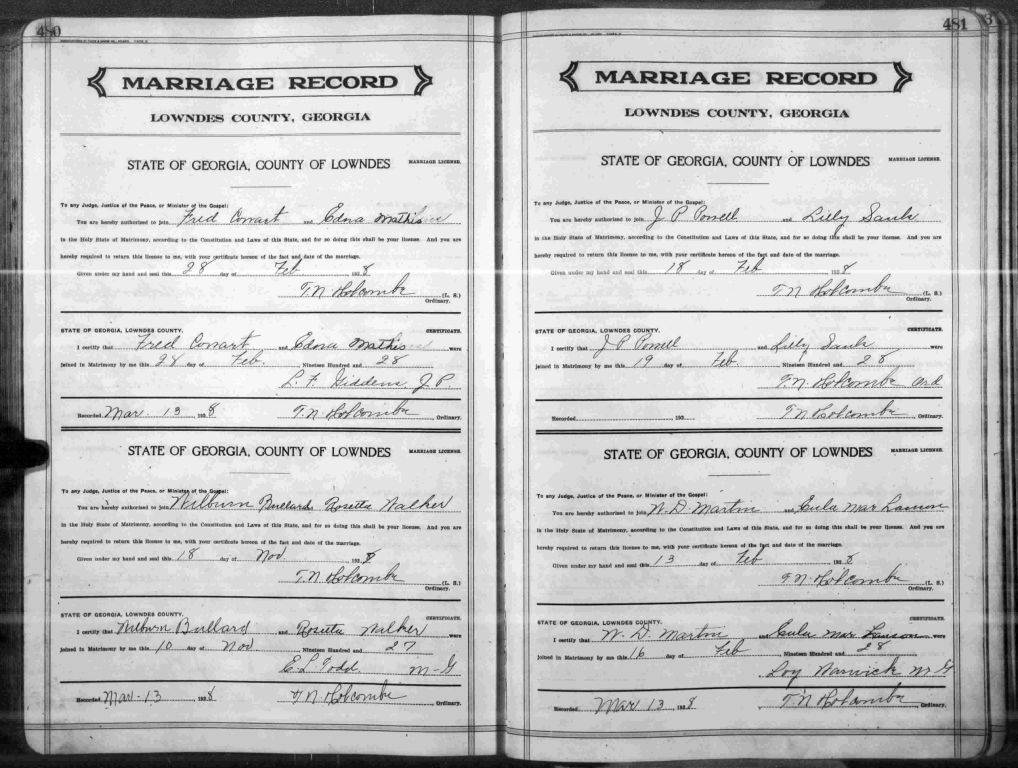 480
MARRIAGE RECORD
LOWNDES COUNTY, GEORGIA
STATE OF GEORGIA, COUNTY OF LOWNDES MARRIAGE LICENSE.
To any Judge, Justice of the Peace, or Minister of the Gospel:
You are hereby authorized to join Fred Cowart and Edna Mathis
in the Holy State of Matrimony, according to the Constitution and Laws of this State, and for so doing this shall be your license. And you are
hereby required to return this license to me, with your certificate hereon of the fact and date of the marriage.
Given under my hand and seal this 28 day of Feb, 1928
T. N. Holcombe (L. S.)
Ordinary.
STATE OF GEORGIA, LOWNDES COUNTY. CERTIFICATE.
I certify that Fred Cowart and Edna Mathis were
joined in Matrimony by me this 28 day of Feb. Nineteen Hundred and 28
L. F. Giddens, J. P.
Recorded Mar. 13 1928 T. N. Holcombe Ordinary.
STATE OF GEORGIA, COUNTY OF LOWNDES MARRIAGE LICENSE.
To any Judge, Justice of the Peace, or Minister of the Gospel:
You are hereby authorized to join Wilburn Bullard Rosetta Walker
in the Holy State of Matrimony, according to the Constitution and Laws of this State, and for so doing this shall be your license. And you are
hereby required to return this license to me, with your certificate hereon of the fact and date of the marriage.
Given under my hand and seal this 18 day of Nov, 1928
T. N. Holcombe (L. S.)
Ordinary.
STATE OF GEORGIA, LOWNDES COUNTY. CERTIFICATE.
I certify that Wilburn Bullard and Rosetta Walker were
joined in Matrimony by me this 10 day of Nov Nineteen Hundred and 27
E. L. Todd M-G
Recorded Mar-13, 1928 T. N. Holcombe Ordinary.
481
MARRIAGE RECORD
LOWNDES COUNTY, GEORGIA
STATE OF GEORGIA, COUNTY OF LOWNDES MARRIAGE LICENSE.
To any Judge, Justice of the Peace, or Minister of the Gospel:
You are hereby authorized to join J P Powell and Lilly Sauls
in the Holy State of Matrimony, according to the Constitution and Laws of this State, and for so doing this shall be your license. And you are
hereby required to return this license to me, with your certificate hereon of the fact and date of the marriage.
Given under my hand and seal this 18 day of Feb, 1928
T. N. Holcombe (L. S.)
Ordinary.
STATE OF GEORGIA, LOWNDES COUNTY. CERTIFICATE.
I certify that J P Powell and Lilly Sauls were
joined in Matrimony by me this 19 day of Feb Nineteen Hundred and 28
T. N. Holcombe Ord
Recorded, 192 T N Holcombe Ordinary.
STATE OF GEORGIA, COUNTY OF LOWNDES MARRIAGE LICENSE.
To any Judge, Justice of the Peace, or Minister of the Gospel:
You are hereby authorized to join W. D. Martin and Eula Mae Lawson
in the Holy State of Matrimony, according to the Constitution and Laws of this State, and for so doing this shall be your license. And you are
hereby required to return this license to me, with your certificate hereon of the fact and date of the marriage.
Given under my hand and seal this 13 day of Feb, 1928
T. N. Holcombe (L. S.)
Ordinary.
STATE OF GEORGIA, LOWNDES COUNTY. CERTIFICATE.
I certify that W. D. Martin and Eula Mae Lawson were
joined in Matrimony by me this 16 day of Feb, Nineteen Hundred and 28
Loy Warwick M G
Recorded Mar 13, 1928 T. N. Holcombe, Ordinary.